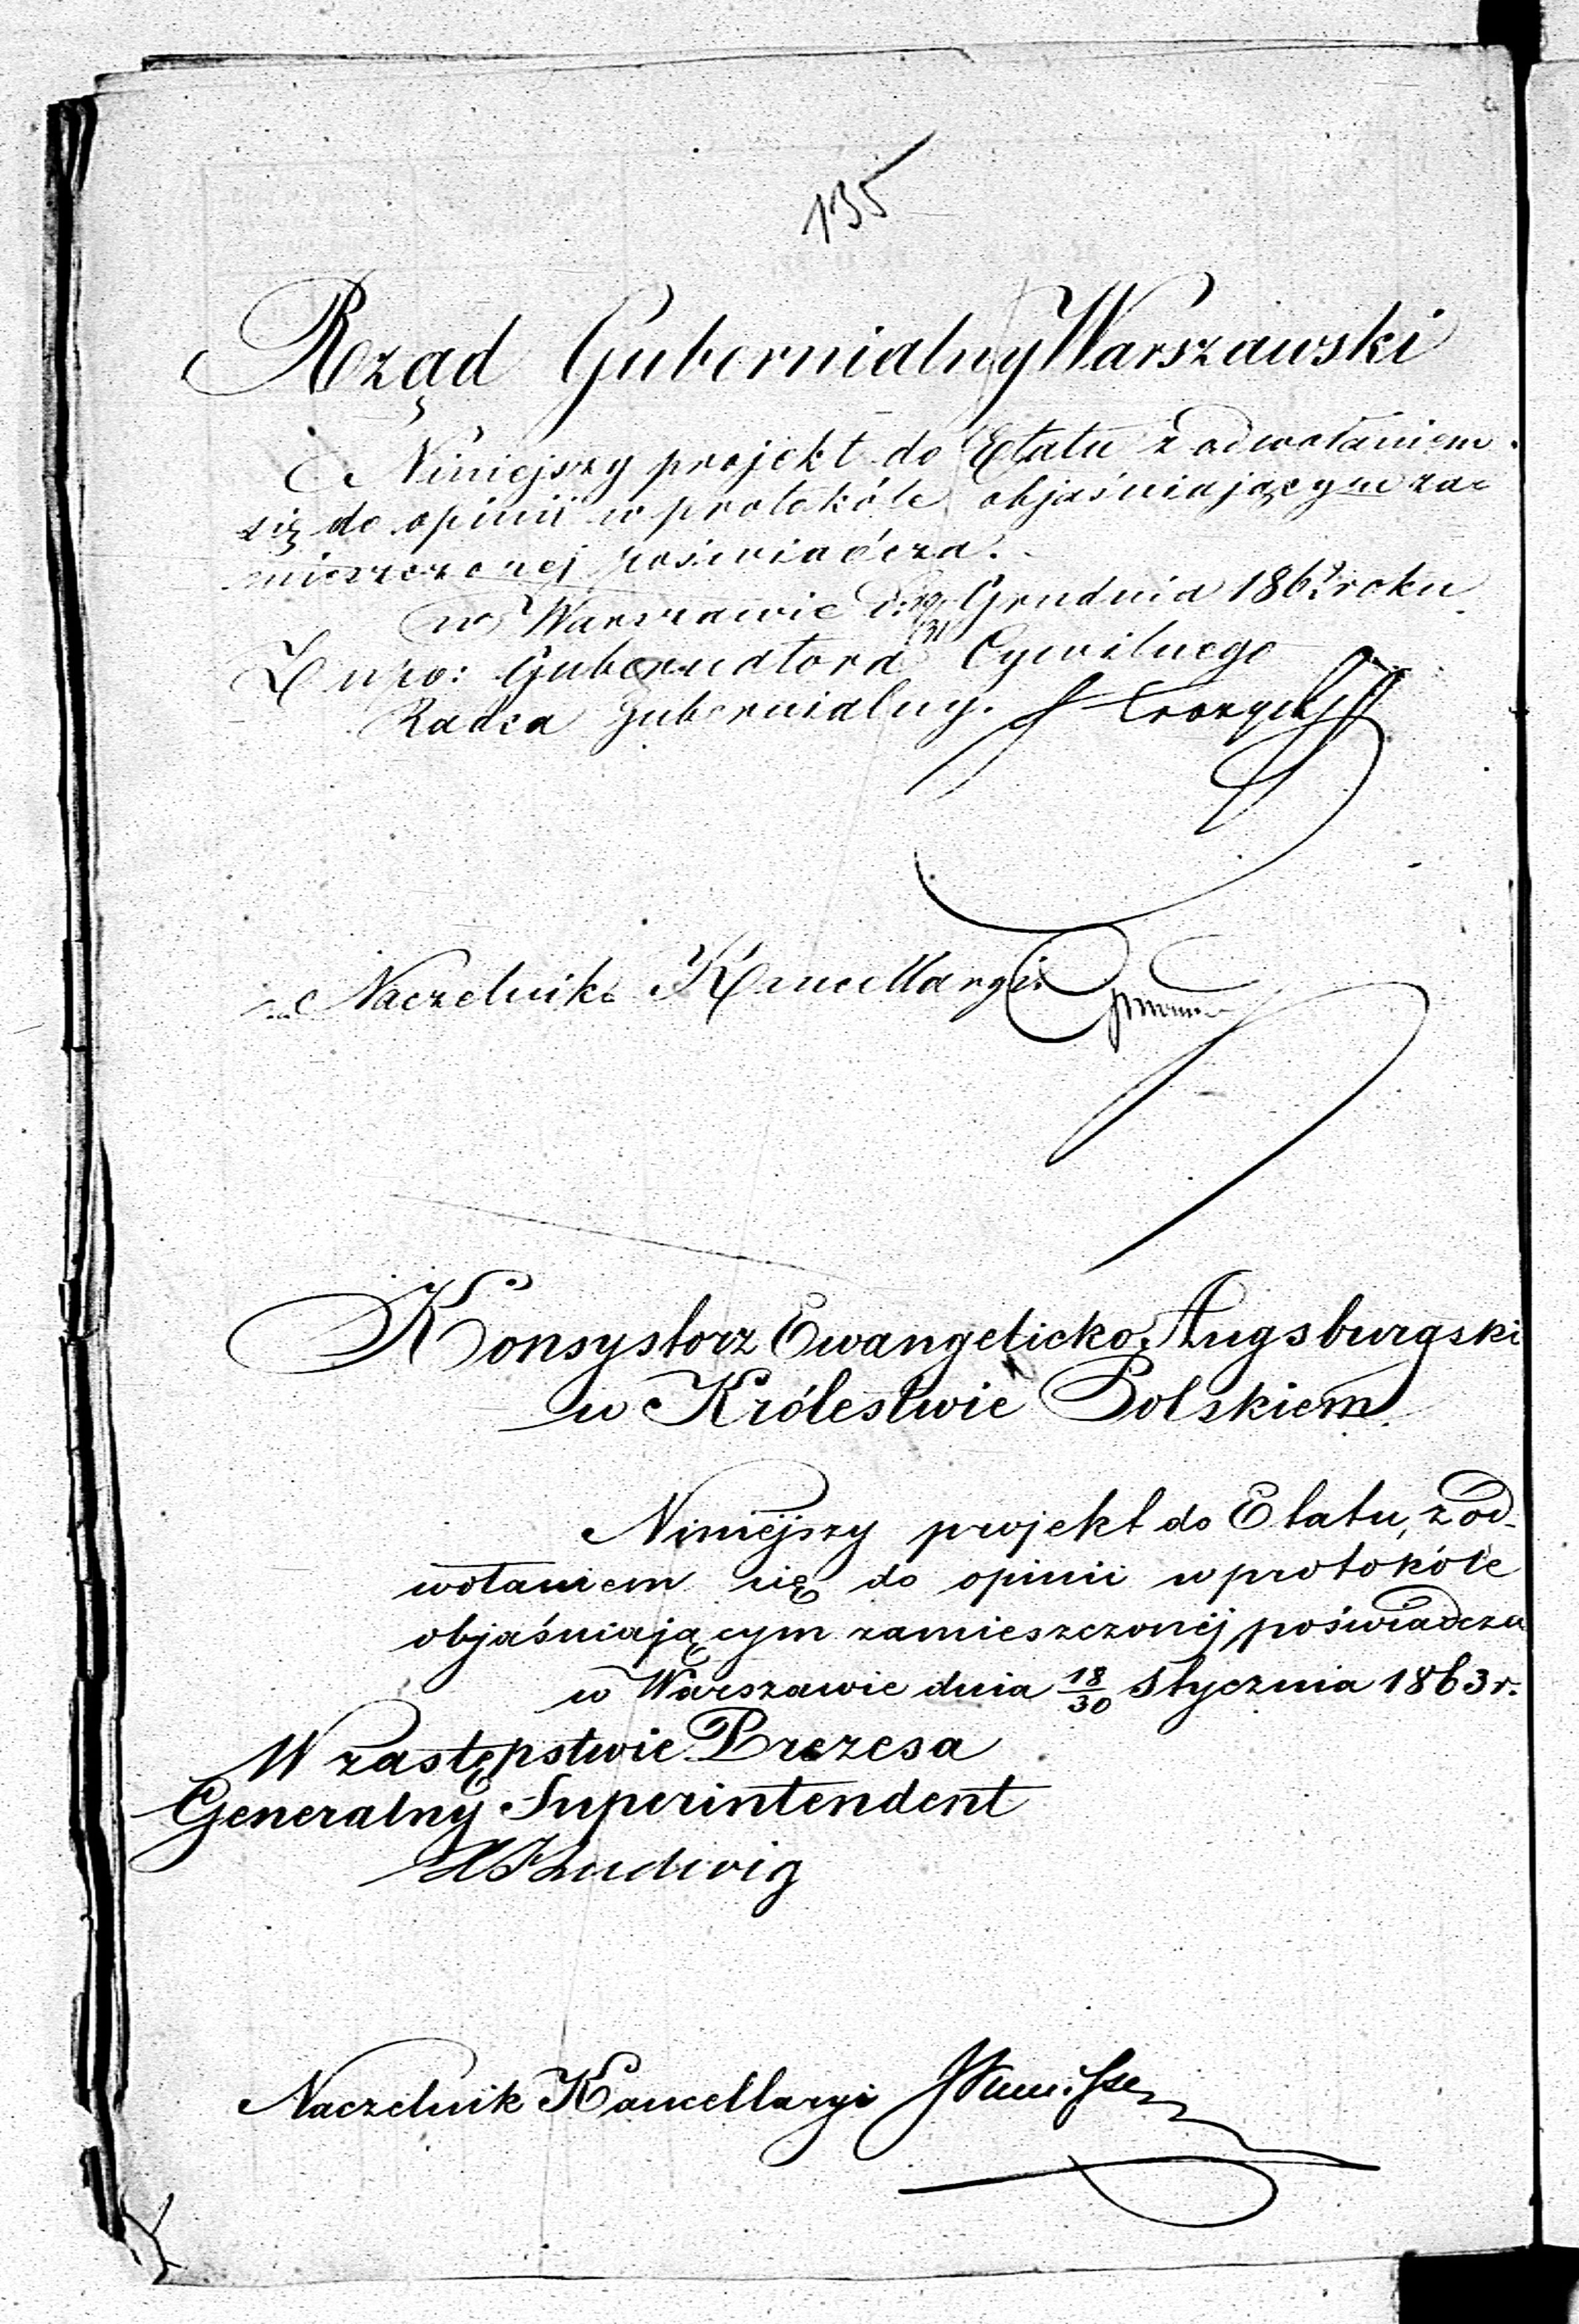 135
Rząd Gubernialny Warszawski
Niniejszy projekt do Etatu z odwołaniem
się do opinii w protokóle objaśniającym za=
mieszczonej poświadcza.
w Warszawie d. 19/31 Grudnia 1862 roku
Z upo: Gubernatora Cywilnego
Radca Gubernialny.
Naczelnik Kancellaryi
Konsystorz Ewangelicko Augsburgski
w Królestwie Polskiem
Niniejszy projekt do Etatu, z od-
wołaniem się do opinii w protokóle
objaśniającym zamieszczonéj poświadcza
w Warszawie dnia 18/30 Stycznia 1863 r.
W zastępstwie Prezesa
Generalny Superintendent
Ludwig
Naczelnik Kancellaryi